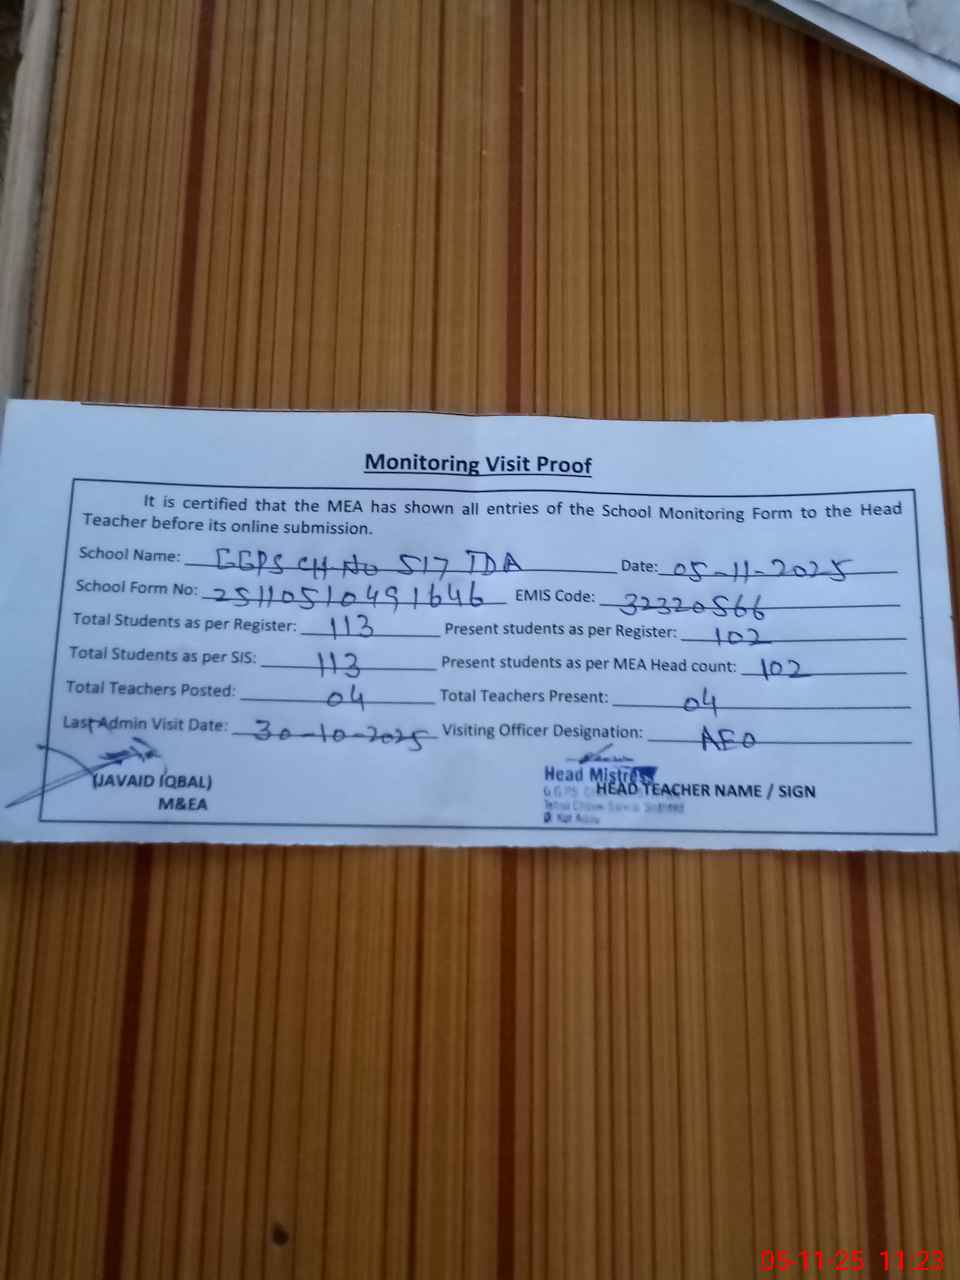 Monitoring Visit Proof
It is certified that the MEA has shown all entries of the School Monitoring Form to the Head
Teacher before its online submission.
School Name: GGPS CH No 517 TDA Date: 05-11-2025
School Form No: 25110510491646 EMIS Code: 32320566
Total Students as per Register: 113 Present students as per Register: 102
Total Students as per SIS: 113 Present students as per MEA Head count: 102
Total Teachers Posted: 04 Total Teachers Present: 04
Last Admin Visit Date: 30-10-2025 Visiting Officer Designation: AEO
(JAVAID IQBAL)
M&EA
Head Mistress
HEAD TEACHER NAME / SIGN
05-11-25 11:23